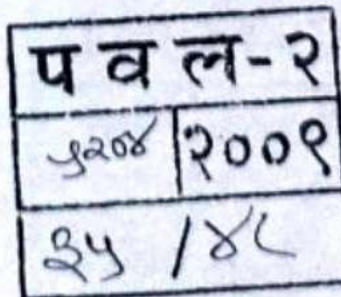 प व ल-२
५२०४ २००९
३५ /४८